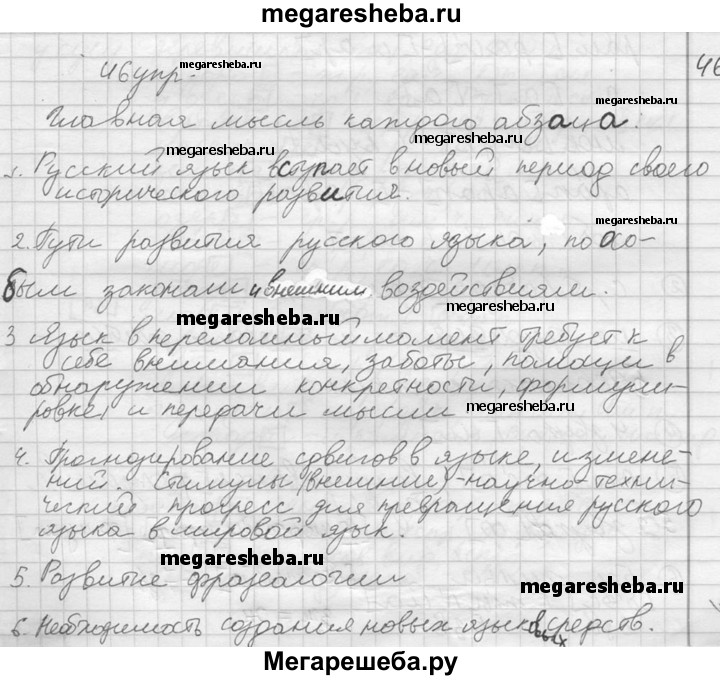 megaresheba.ru
46 упр. megaresheba.ru 46
Главная мысль каждого абзаца: megaresheba.ru
megaresheba.ru megaresheba.ru
1. Русский язык вступает в новый период своего
исторического развития.
2. Пути развития русского языка, по осо-
бым законам и внешним воздействиям.
megaresheba.ru megaresheba.ru
3 Язык в переломный момент требует к
себе внимания, заботы, помощи в
обнаружении конкретности, формули-
ровке, и передачи мысли megaresheba.ru
4. Прогнозирование сдвигов в языке, измене-
ний. Стимулы (внешние)-научно-техни-
ческий прогресс для превращения русского
языка в мировой язык.
megaresheba.ru
5. Развитие фразеологии megaresheba.ru
6. Необходимость создания новых языковых средств.
Мегарешеба.ру